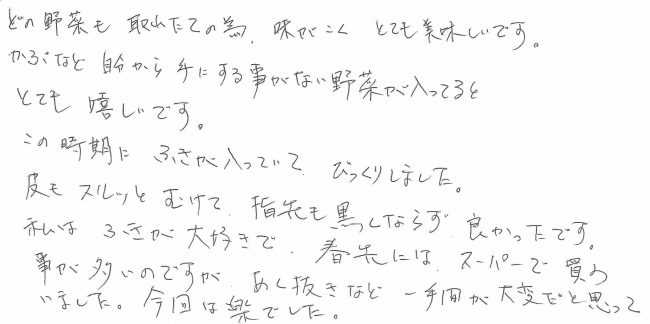 どの野菜も 取れたての為、味がこく とても美味しいです。
かぶなど 自分から手にする事がない野菜が入ってると
とても 嬉しいです。
この時期に ふきが入っていて、びっくりしました。
皮も スルッと むけて、指先も黒くならず 良かったです。
私は ふきが大好きで、春先には、スーパーで 買う
事が多いのですが、あく抜きなど 一手間が大変だと思って
いました。今回は楽でした。